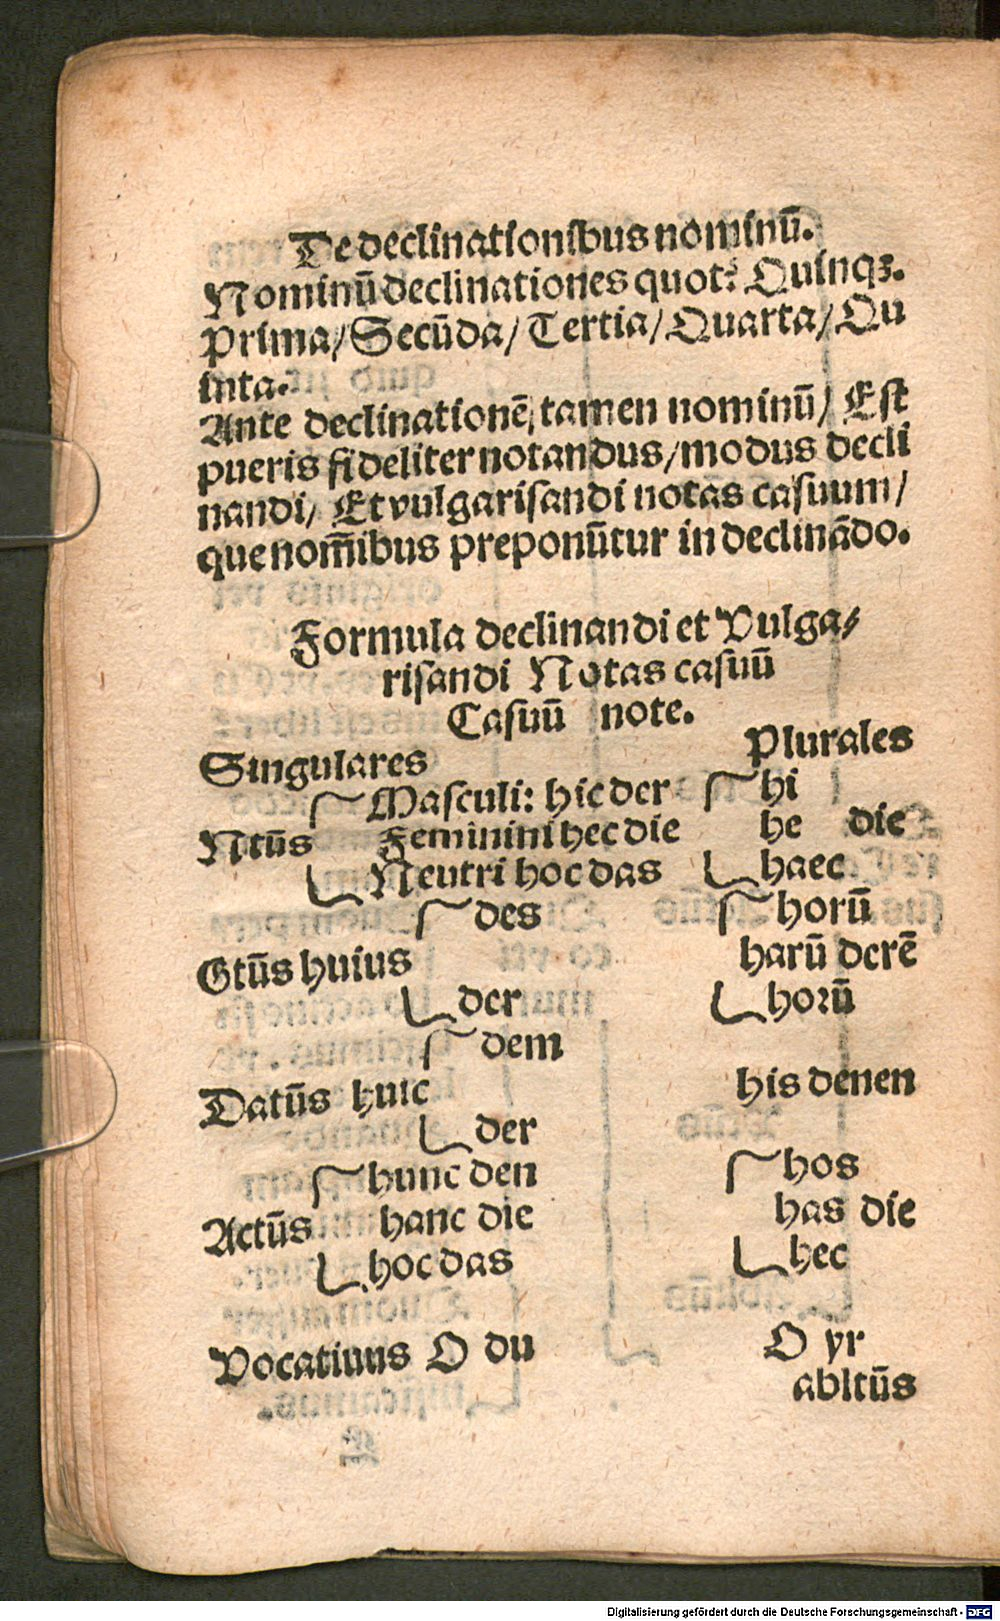 De declinationibus nominū.
Nominū declinationes quot? Quinqꝫ.
Prima/Secūda/Tertia/Quarta/Qu
inta.
Ante declinationē tamen nominū/ Est
pueris fideliter notandus/modus decli
nandi/ Et vulgarisandi notas casuum/
que nomībus preponūtur in declinādo.
Formula declinandi et Vulga/
risandi Notas casuū
Casuū note.
Singulares Plurales
Masculi: hic der hi
Ntūs Feminini hec die he die
Neutri hoc das haec
des horū
Gtūs huius harū derē
der hoꝛū
dem
Datūs huic his denen
der
hunc den hos
Actūs hanc die has die
hoc das hec
Vocatiuus O du O yr
abltūs
Digitalisierung gefördert durch die Deutsche Forschungsgemeinschaft - DFG